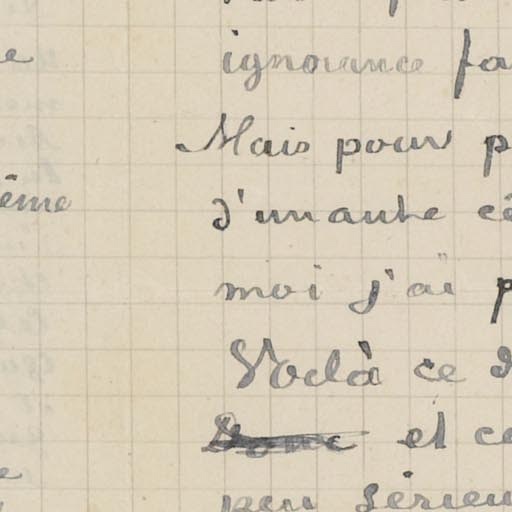 ignorance fa
Mais pour p
ême
d'un autre cô
moi j'ai p
Voilà ce d
et ce
peu sérieu